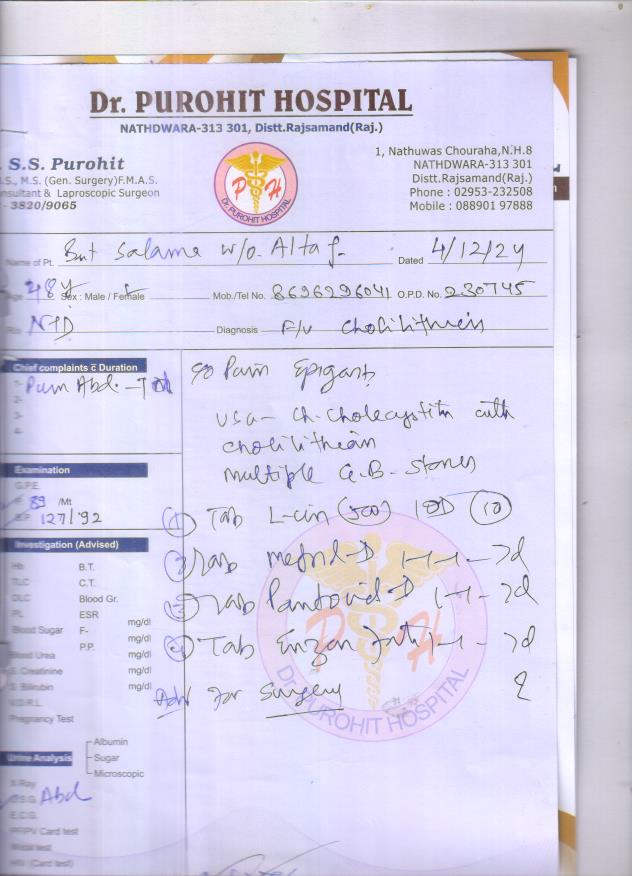 Dr. PUROHIT HOSPITAL
NATHDWARA-313 301, Distt.Rajsamand(Raj.)
S.S. Purohit
M.S. (Gen. Surgery)F.M.A.S.
& Laproscopic Surgeon
3820/9065
P H
Dr. PUROHIT HOSPITAL
1, Nathuwas Chouraha,N.H.8
NATHDWARA-313 301
Distt.Rajsamand(Raj.)
Phone : 02953-232508
Mobile : 088901 97888
Name of Pt. But Salama w/o. Altaf Dated 4/12/24
Age 48y Sex : Male / Female Mob./Tel No. 8696296041 O.P.D. No. 230745
NTD Diagnosis F/u Cholilithesis
Chief complaints c Duration
1- Pain Abd.
2-
3-
4-
c/o Pain Epigast
USG- Ch. Cholecystitis with
cholilithiasis
multiple G.B. Stones
Examination
G.P.E.
P 89 /Mt
B.P. 127/92
① Tab L-cin (500) 1OD ⑩
② Tab -D 1-1- 7d
③ Tab Pantovid-D 1-1- 7d
④ Tab Enzan forte 1-1- 7d
Adv for Surgery
Investigation (Advised)
Hb B.T.
TLC C.T.
DLC Blood Gr.
PL ESR
Blood Sugar F- mg/dl
P.P. mg/dl
Blood Urea mg/dl
S. Creatinine mg/dl
S. Bilirubin mg/dl
V.D.R.L.
Pregnancy Test
P H
Dr. PUROHIT HOSPITAL
Urine Analysis
Albumin
Sugar
Microscopic
X-Ray
U.S.G. Abd
E.C.G.
PF/PV Card test
Widal test
HIV (Card test)